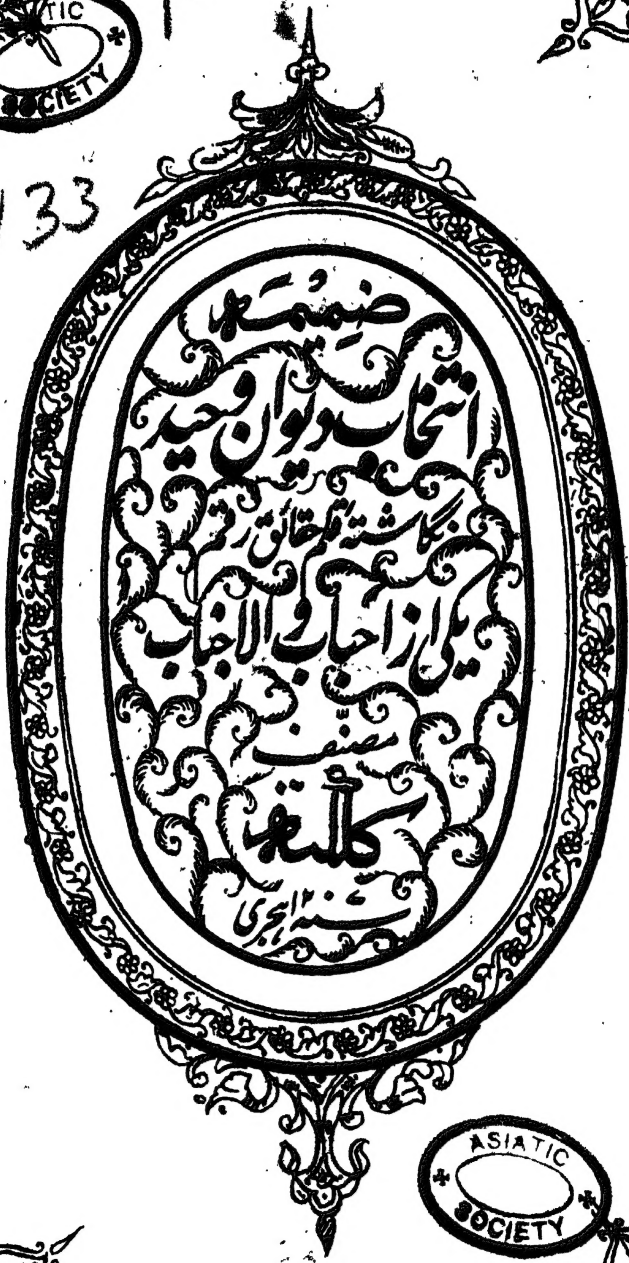 TIC
SOCIETY
133
ضمیمہ
انتخاب دیوان وحید
نگاشتہ قلم حقائق رقم
یکی از احباب والاجناب
مصنّف
کلکتہ
ہجری
ASIATIC
SOCIETY